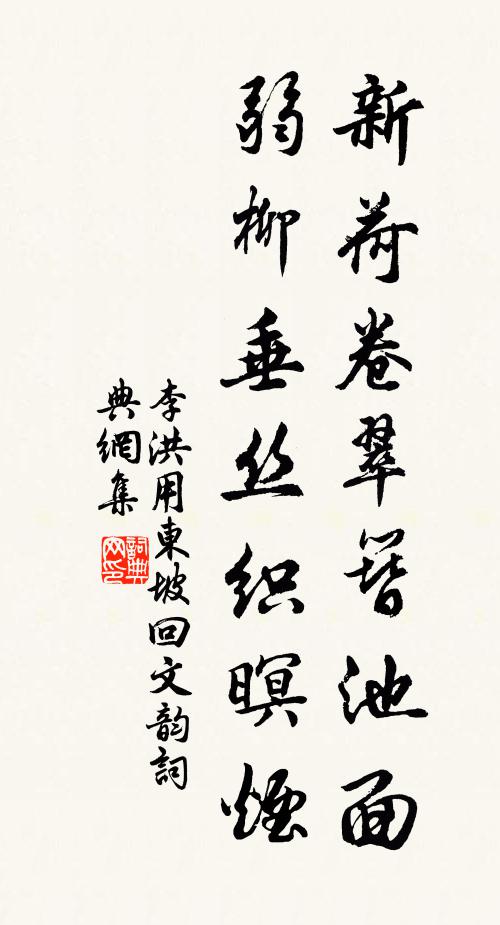 新荷卷翠簪池面
弱柳垂丝织暝煙
李洪用東坡回文韵詞
典網集
詞典
网印